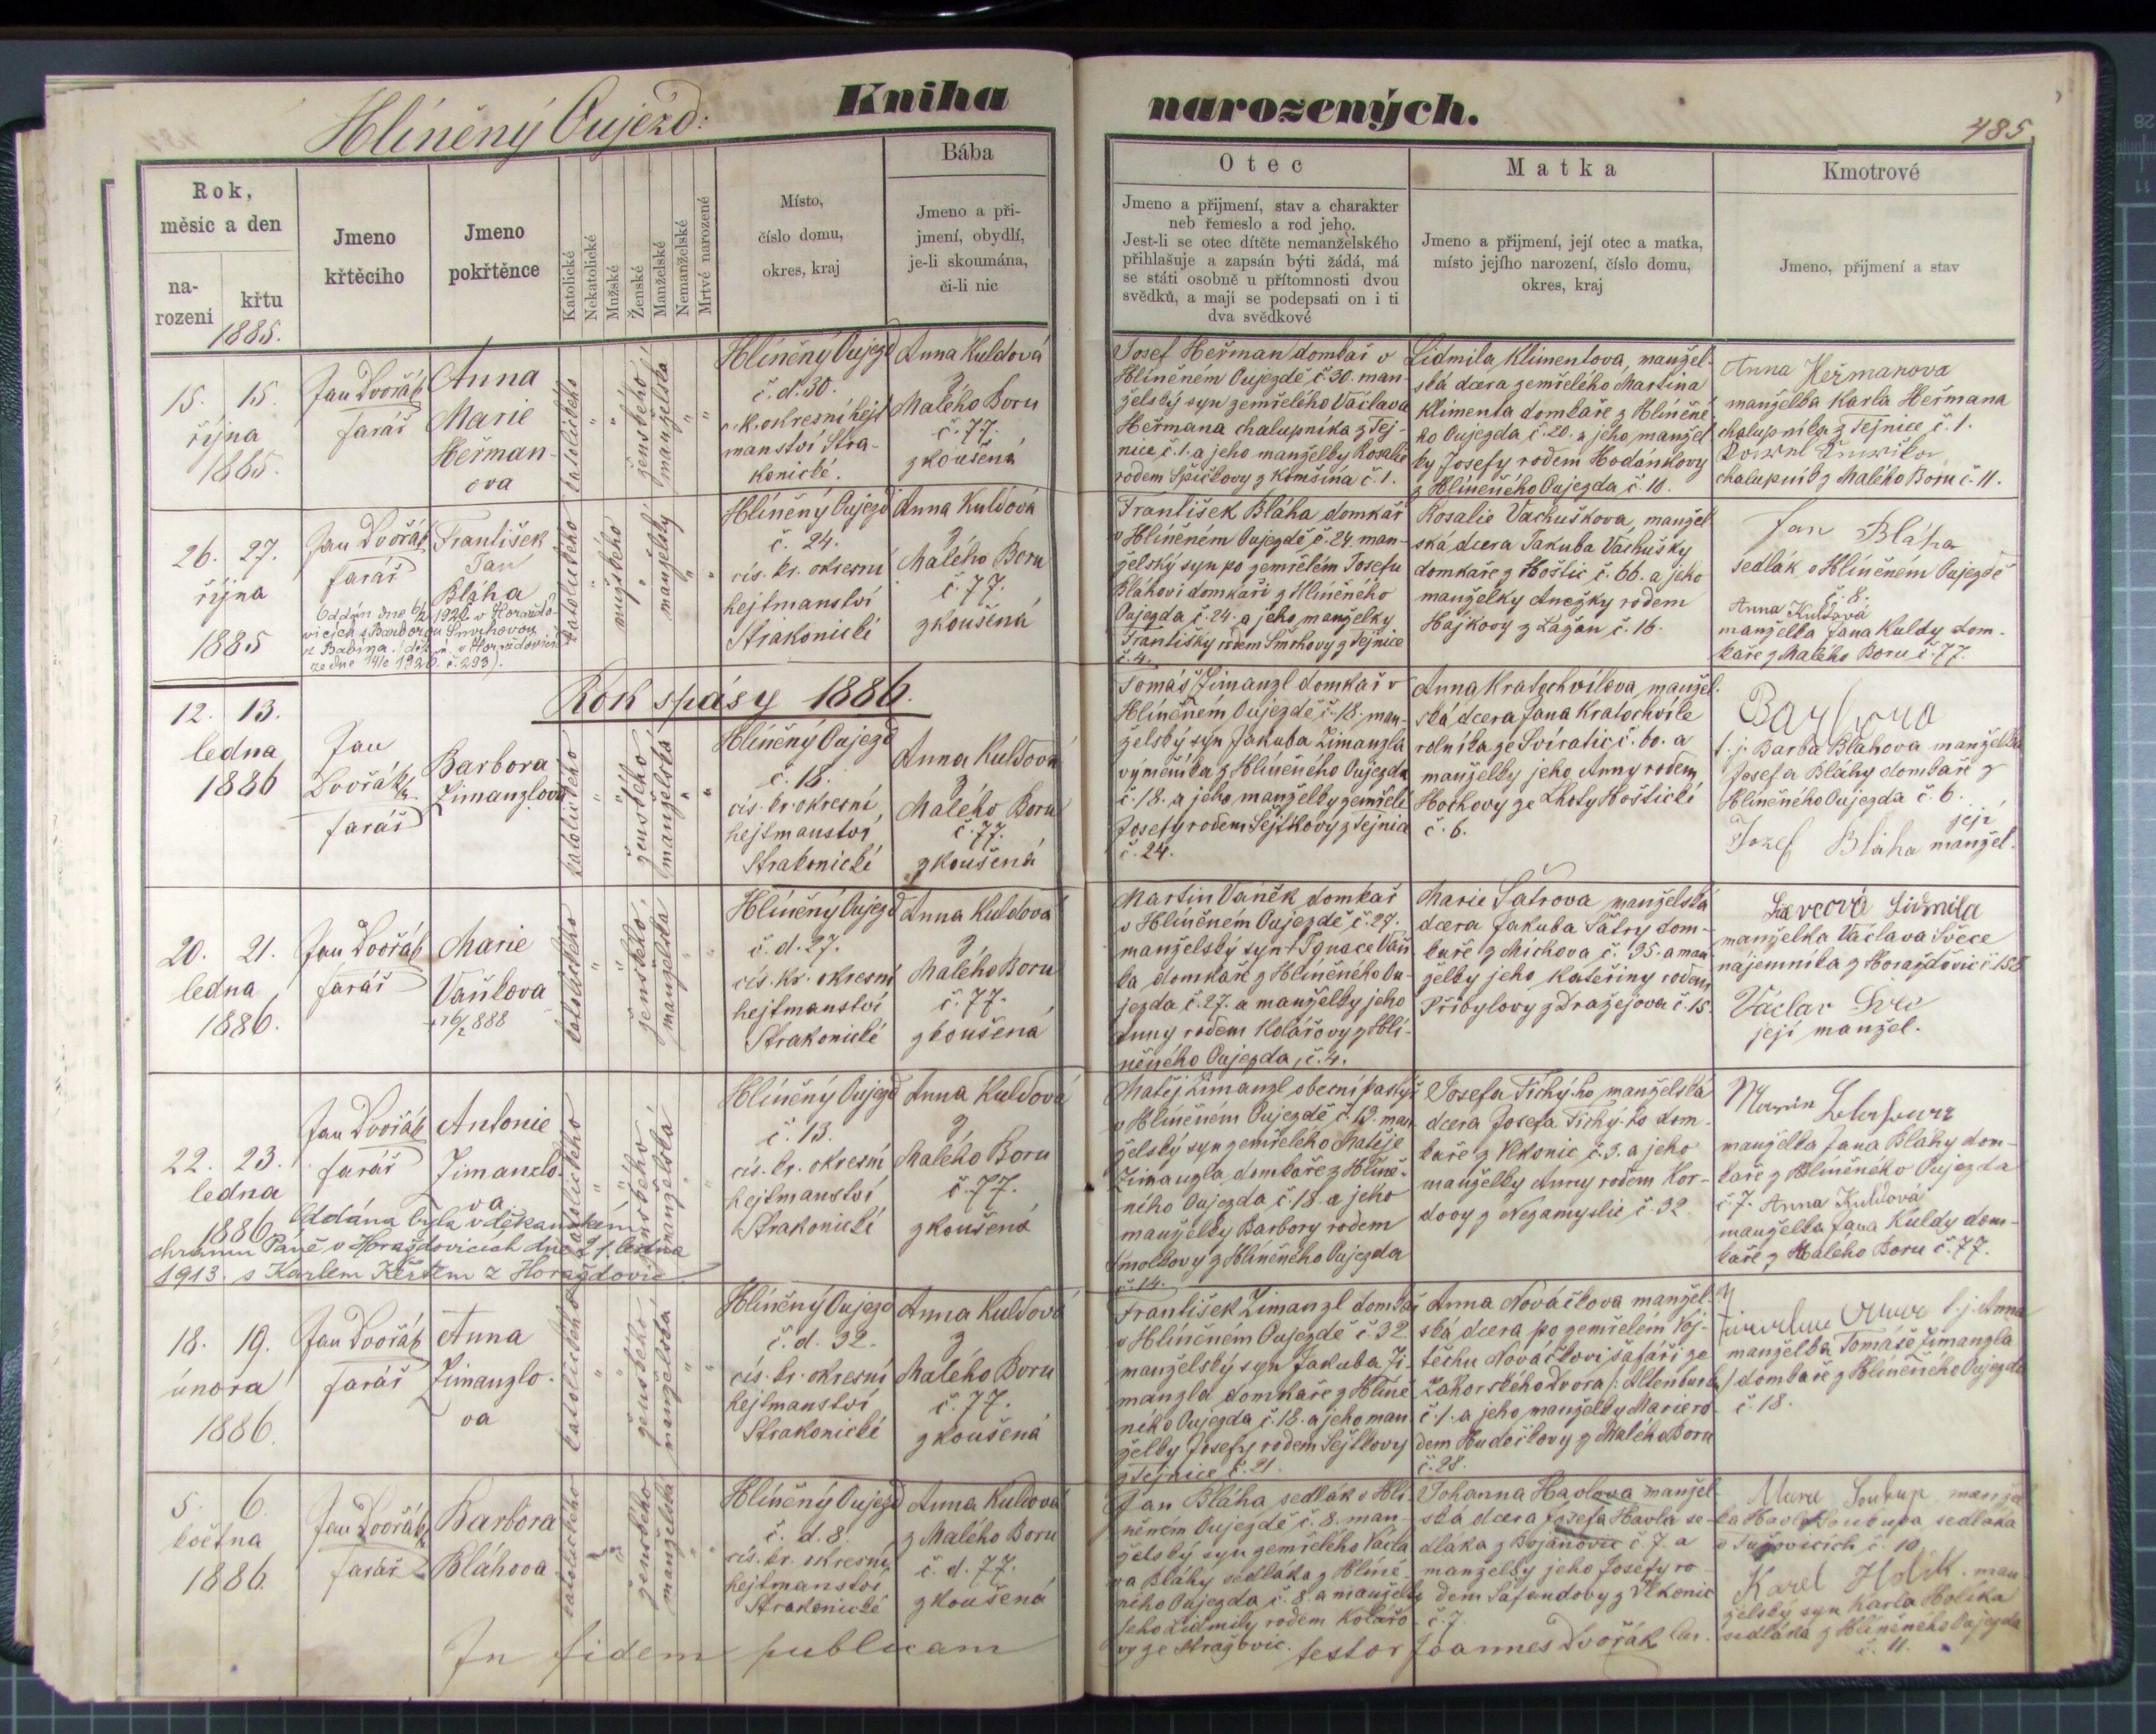 Hlíněný Oujezd:
Kniha
narozených.
485
Rok,
měsíc a den
na-
rozeni
křtu
1885.
Jmeno
křtěciho
Jmeno
pokřtěnce
Katolické
Nekatolické
Mužské
Ženské
Manželské
Nemanželské
Mrtvé narozené
Místo,
číslo domu,
okres, kraj
Bába
Jmeno a při-
jmení, obydlí,
je-li skoumána,
či-li nic
Otec
Jmeno a přijmení, stav a charakter
neb řemeslo a rod jeho.
Jest-li se otec dítěte nemanželského
přihlašuje a zapsán býti žádá, má
se státi osobně u přítomnosti dvou
svědků, a mají se podepsati on i ti
dva svědkové
Matka
Jmeno a přijmení, její otec a matka,
místo jejího narození, číslo domu,
okres, kraj
Kmotrové
Jmeno, přijmení a stav
15. 15.
října
1885.
Jan Dvořák
farář
Anna
Marie
Heřman-
ova
katolického
" "
ženského
manželská
" "
Hlíněný Oujezd
č. d. 30.
c. k. okresní hejt
manství Stra-
konické.
Anna Kuldová
z
Malého Boru
č. 77.
zkoušená
Josef Heřman domkař v
Hlíněném Oujezdě č. 30. man-
želský syn zemřelého Václava
Heřmana chalupníka z Tej-
nice č. 1. a jeho manželky Rosalie
rodem Špičkovy z Komšína č. 1.
Lidmila Klimentova, manžel-
ská dcera zemřelého Martina
Klimenta domkaře z Hlíněné
ho Oujezda č. 20. a jeho manžel
ky Josefy rodem Hodánkovy
z Hlíněného Oujezda č. 10.
Anna Heřmanova
manželka Karla Heřmana
chalupníka z Tejnice č. 1.
chalupník z Malého Boru č. 11.
26. 27.
října
1885
Jan Dvořák
farář
František
Jan
Bláha
Oddán dne 6/2 1926 v Horažďo-
vicích s Barborou Smrhovou
z Babína.
katolického
"
mužského
"
manželský
" "
Hlíněný Oujezd
č. 24.
cís. kr. okresní
hejtmanství
Strakonické
Anna Kuldová
z
Malého Boru
č. 77.
zkoušená
František Bláha domkář
v Hlíněném Oujezdě č. 24. man-
želský syn po zemřelém Josefu
Bláhovi domkáři z Hlíněného
Oujezda č. 24. a jeho manželky
Františky rodem Smrhovy z Tejnice
č. 4.
Rosalie Vachuškova, manžel
ská dcera Jakuba Vachušky
domkaře z Hoštic č. 66. a jeho
manželky Anežky rodem
Hájkovy z Lažan č. 16.
Jan Bláha
sedlák v Hlíněném Oujezdě
č. 8.
Anna Kuldová
manželka Jana Kuldy dom-
kaře z Malého Boru č. 77.
Rok spásy 1886.
12. 13.
ledna
1886
Jan
Dvořák
farář
Barbora
Zimanzlova
katolického
" "
ženského
manželská
" "
Hlíněný Oujezd
č. 18.
cís. kr. okresní
hejtmanství
Strakonické
Anna Kuldová
z
Malého Boru
č. 77.
zkoušená
Tomáš Zimanzl domkař v
Hlíněném Oujezdě č. 18. man-
želský syn Jakuba Zimanzla
výměníka z Hlíněného Oujezda
č. 18. a jeho manželky zemřelé
Josefy rodem Sejtkovy z Tejnice
č. 24.
Anna Kratochvílova, manžel-
ská dcera Jana Kratochvíle
rolníka ze Svíratic č. 60. a
manželky jeho Anny rodem
Hockovy ze Lhoty Hoštické
č. 6.
t. j. Barba Bláhova manželka
Josefa Bláhy domkaře z
Hlíněného Oujezda č. 6.
Jozef Bláha její manžel.
20. 21.
ledna
1886.
Jan Dvořák
farář
Marie
Vaňkova
katolického
" "
ženského
manželská
" "
Hlíněný Oujezd
č. d. 27.
cís. kr. okresní
hejtmanství
Strakonické
Anna Kuldová
z
Malého Boru
č. 77.
zkoušená
Martin Vaněk domkař
v Hlíněném Oujezdě č. 27.
manželský syn † Ignace Vaň
ka domkaře z Hlíněného Ou-
jezda č. 27. a manželky jeho
Anny rodem Kolářovy z Hlí-
něného Oujezda, č. 4.
Marie Šatrova manželská
dcera Jakuba Šatry dom-
kaře z Míchova č. 35. a man
želky jeho Kateřiny rodem
Přibylovy z Dražejova č. 15.
Lidmila
manželka Václava Ševce
nájemníka z Horažďovic č. 158
Václav
její manžel.
22. 23.
ledna
1886.
Jan Dvořák
farář
Antonie
Zimanzlo-
va
Oddána byla v děkanském
chrámu Páně v Horažďovicích dne 21. ledna
1913. s Karlem Keřštem z Horažďovic
katolického
" "
ženského
manželská
"
Hlíněný Oujezd
č. 13.
cís. kr. okresní
hejtmanství
Strakonické
Anna Kuldová
z
Malého Boru
č. 77.
zkoušená
Matěj Zimanzl obecní pastýř
v Hlíněném Oujezdě č. 13. man-
želský syn zemřelého Matěje
Zimanzla domkaře z Hlíně-
ného Oujezda č. 18. a jeho
manželky Barbory rodem
Smolkovy z Hlíněného Oujezda
č. 14.
Josefa Tichý-ho manželská
dcera Josefa Tichý-ho dom-
kaře z Vlkonic č. 3. a jeho
manželky Anny rodem Kor-
dovy z Nezamyslic č. 32.
manželka Jana Bláhy dom-
kaře z Hlíněného Oujezda
č. 7. Anna Kuldová
manželka Jana Kuldy dom-
kaře z Malého Boru č. 77.
18. 19.
února
1886.
Jan Dvořák
farář
Anna
Zimanzlo-
va
katolického
" "
ženského
manželská
" "
Hlíněný Oujezd
č. d. 32.
cís. kr. okresní
hejtmanství
Strakonické
Anna Kuldová
z
Malého Boru
č. 77.
zkoušená
František Zimanzl domkař
v Hlíněném Oujezdě č. 32
manželský syn Jakuba Zi-
manzla domkaře z Hlíně
ného Oujezda č. 18. a jeho man
želky Josefy rodem Sejtkovy
z Tejnice č. 21.
Anna Nováčkova manžel-
ská dcera po zemřelém Voj-
těchu Nováčkovi šafáři ze
Zákorského Dvora /: Altenburk /
č. 1. a jeho manželky Marie ro-
dem Hudečkovy z Malého Boru
č. 28.
t. j. Anna
manželka Tomáše Zimanzla
domkaře z Hlíněného Oujezda
č. 18.
5. 6.
května
1886.
Jan Dvořák
farář
Barbora
Bláhova
katolického
" "
ženského
manželská
" "
Hlíněný Oujezd
č. d. 8.
cís. kr. okresní
hejtmanství
Strakonické
Anna Kuldová
z Malého Boru
č. d. 77.
zkoušená
Jan Bláha sedlák v Hlí-
něném Oujezdě č. 8. man-
želský syn zemřelého Václa
va Bláhy sedláka z Hlíně-
ného Oujezda č. 8. a manželky
jeho Lidmily rodem Kolářo-
vy ze Stražovic.
Johanna Havlova manžel-
ská dcera Josefa Havla se-
dláka z Bojanovic č. 7. a
manželky jeho Josefy ro-
dem Šafandovy z Vlkonic
č. 7.
Soukup manžel
ka Havla Soukupa sedláka
v Tužovicích č. 10.
Karel Holik. man
želský syn Karla Holíka
sedláka z Hlíněného Oujezda
č. 11.
In fidem publicam
testor Joannes Dvořák